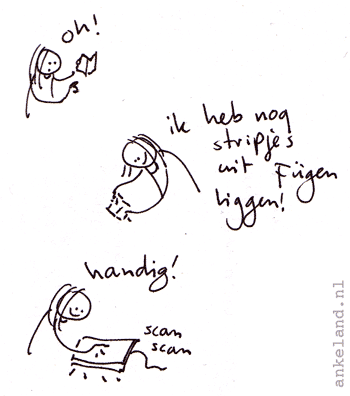 oh!
ik heb nog
stripjes
uit Fügen
liggen!
handig!
scan
scan
ankeland.nl